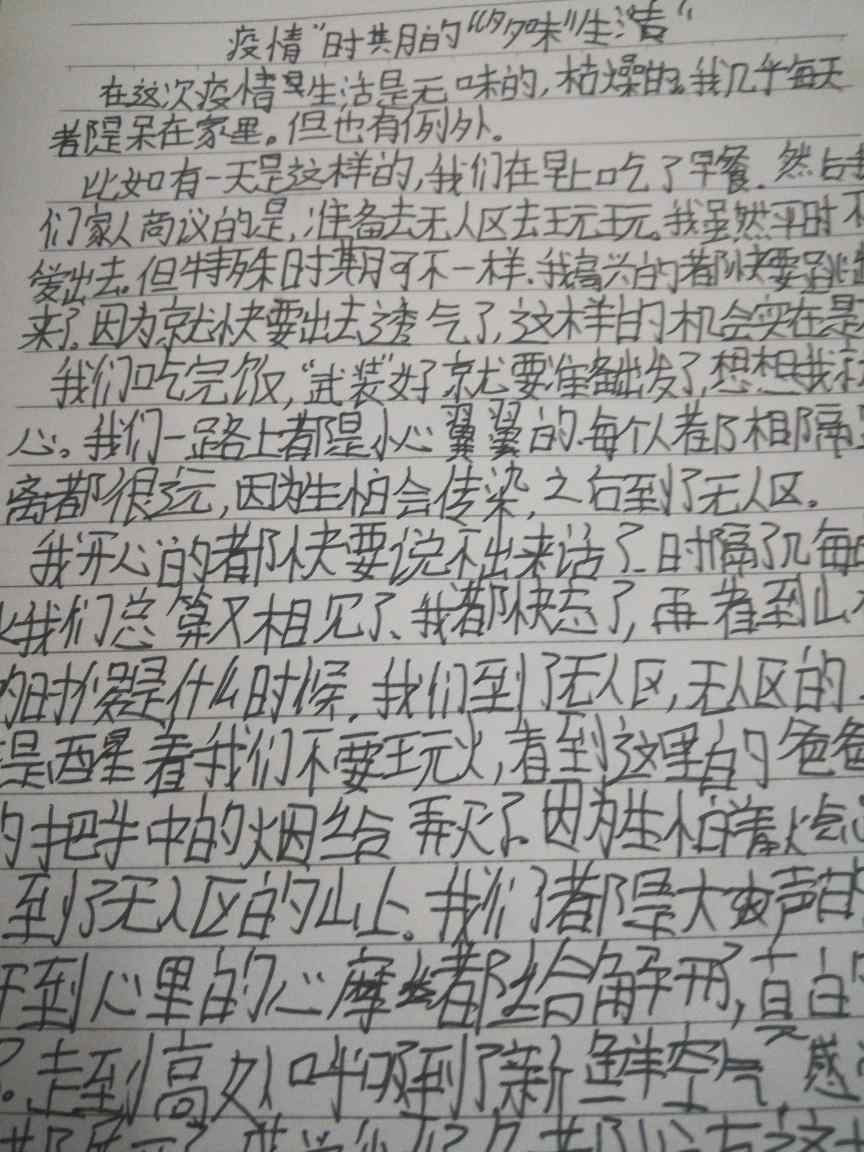 疫情"时期的"多味"生活"
在这次疫情里生活是无味的,枯燥的。我几乎每天
都是呆在家里。但也有例外。
比如有一天是这样的,我们在早上吃了早餐.然后我
们家人商议的是,准备去无人区去玩玩。我虽然平时不
爱出去。但特殊时期可不一样、我高兴的都快要跳
来了.因为就快要出去透气了,这样的机会实在是
我们吃完饭,"武装"好就要准备出发了,想想我
心。我们一路上都是小心翼翼的、每个人都相隔
离都很远,因为生怕会传染,之后到了无人区。
我开心的都快要说不出来话了.时隔了几每
我们总算又相见了、我都快忘了,再看到山
的时候是什么时候.我们到了无人区,无人区的
是醒着我们不要玩火,看到这里的爸爸
的把手中的烟给弄灭了.因为生怕着火
到了无人区的山上。我们都是大声
到心里的心魔都给解开,真的
走到高处呼吸到了新鲜空气